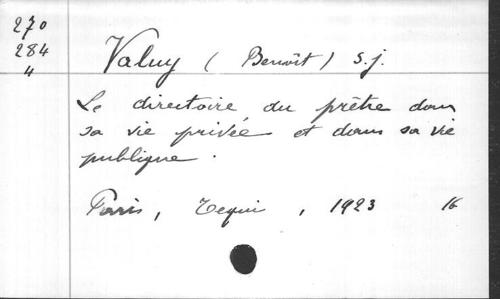 270
284
4
Valuy (Benoît) s.j.
Le directoire du prêtre dans
sa vie privée et dans sa vie
publique.
Paris, Tequi, 1923 16